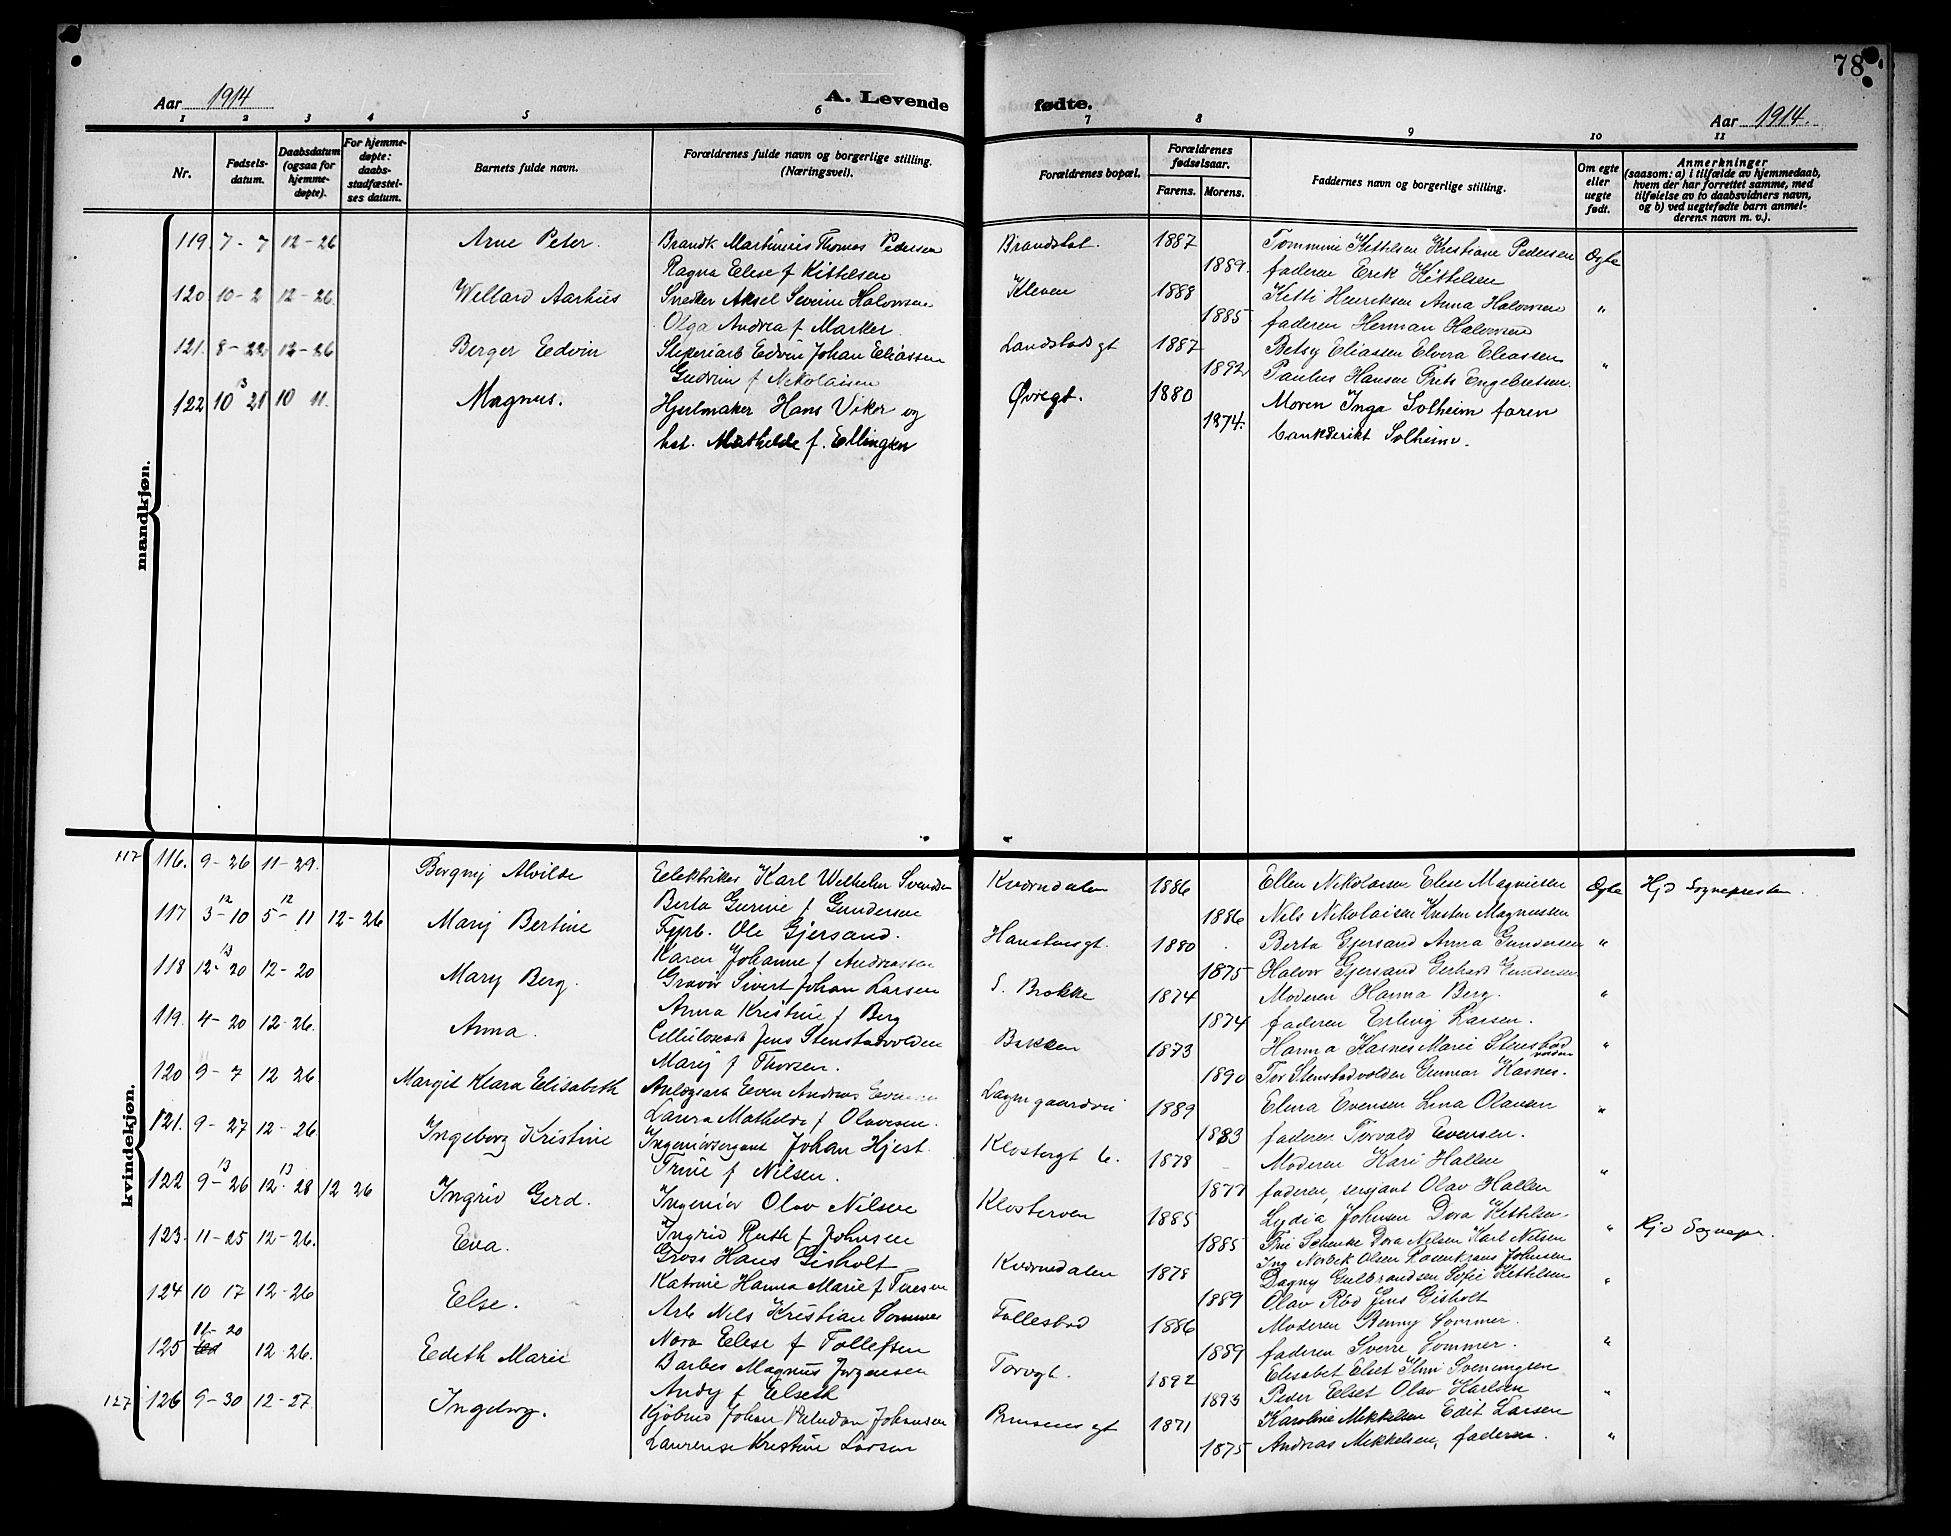 78
Aar 1914
A. Levende fødte.
Aar 1914.
1 2 3 4 5 6 7 8 9 10 11
Nr.
Fødsels-
datum.
Daabsdatum
(ogsaa for
hjemme-
døpte).
For hjemme-
døpte:
daabs-
stadfæstel-
ses datum.
Barnets fulde navn.
Forældrenes fulde navn og borgerlige stilling.
(Næringsvei).
Forældrenes bopæl.
Forældrenes
fødselsaar.
Farens. Morens.
Faddernes navn og borgerlige stilling.
Om egte
eller
uegte
født.
Anmerkninger
(saasom: a) i tilfælde av hjemmedaab,
hvem der har forrettet samme, med
tilføielse av to daabsvidners navn,
og b) ved uegtefødte barn anmel-
derens navn m. v.).
mandkjøn.
119. 7 - 7 12 - 26 Arne Peter. Brandk Martinius Thomas Pedersen Brandstat. 1887 Tommine Kittilsen Kristiane Pedersen Ogte
Ragna Elise f Kittilsen 1889. faderen Erik Kittilsen
120 10 - 2 12 - 26. Wellard Aarhus Snedker Aksel Severin Halvorsen Kleven 1888 Kitti Henriksen Anna Halvorsen "
Olga Andrea f Marker 1885 faderen Herman Halvorsen
121. 8 - 22 12 - 26 Berger Edvin Sliperiarb Edvin Johan Eliassen Landstadsgt 1887 Betsy Eliassen Elvera Eliassen "
Gudrun f Nikolaisen 1892 Paulus Hansen Frits Engebretsen.
122 10 13 21 10 11. Magnus. Hjulmaker Hans Viker og Øvregt. 1880 Moren Inga Solheim faren
hst. Mathilde f. Ellingsen 1874. Solheim.
kvindekjøn.
117 116. 9 - 26 11 - 29. Borgny Alvilde Elektriker Karl Wilhelm Svendsen Kværndalen 1886 Ellen Nikolaisen Elise Magnussen Ogte Hjd Sognepresten.
Berta Gurine f Gundersen 1886 Nils Nikolaisen Kristen Magnussen
117 3 12 - 10 5 12 - 11 12 - 26 Marij Bertine Fyrb. Ole Gjersand. 1880 Berta Gjersand Anna Gundersen "
Karen Johanne f Andreassen 1875 Halvor Gjersand Gerhard Gundersen
118 12 13 - 20 12 - 20 Mary Berg. Graver Sivert Johan Larsen S. Brokke 1874 Moderen Hanna Berg. "
Anna Kristine f Berg 1874 faderen Erling Larsen.
119. 4 - 20 12 - 26. Anna. Cellulosearb Jens Stenstadvolden Bakken 1873 Hanna Hasnes Marie Stenstad "
volden
Marij f Thorsen. 1890 Tor Stenstadvolden Gunnar Hasnes.
120 9 - 7 12 26 Margit Klara Elisabeth Anlægsarb Even Andreas Evensen 1889 Elina Evensen Lina Olavsen "
Laura Mathilde f Olavesen. 1883 faderen Torvald Evensen.
121. 9 - 27 12 - 26. Ingeborg Kristine Ingeniørsergeant Johan Hjest. Klostergt 6. 1878 Moderen Kari Hallen "
Trine f Nilsen. 1877 faderen, sersjant Olav Hallen
122 9 13 - 26 12 13 - 28 12 26 Ingrid Gerd. Ingeniør Olav Nilsen Klosterøen 1885 Lydia Johnsen Dora Kittilsen. " Hjd Sognepr.
Ingrid Ruth f Johnsen 1885 Dora Nilsen Karl Nilsen
Olsen Rosenkrans Johnsen
123. 11 - 25 12 - 26. Eva. Gross Hans Gisholt Kværndalen 1878 Dagny Gulbrandsen Sofie Kittilsen "
Katrine Hanna Marie f Turesen 1889 Olav Rød Jens Gisholt
124 10 17 12 - 26 Else. Arb Nils Kristian Sommer Follestad 1886 Moderen Renny Sommer. "
Nora Elise f Tollefsen 1889 faderen Sverre Sommer.
125 11 - 20 12 - 26. Edeth Marie Barber Magnus Jørgensen Torvgt. 1892 Elisabet Elset Sveningsen
Andy f Elseth 1893 Peder Elset Olav Karlsen "
127 126 9 - 30 12 - 27. Ingeborg. Kjøbmd Johan Paludan Johansen 1871 Karoline Mikkelsen Edit Larsen
Laurense Kristine Larsen 1875 Andreas Mikkelsen, faderen. "